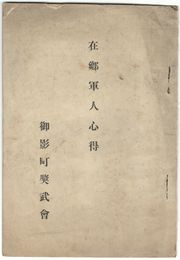 在郷軍人心得
御影町奬武會